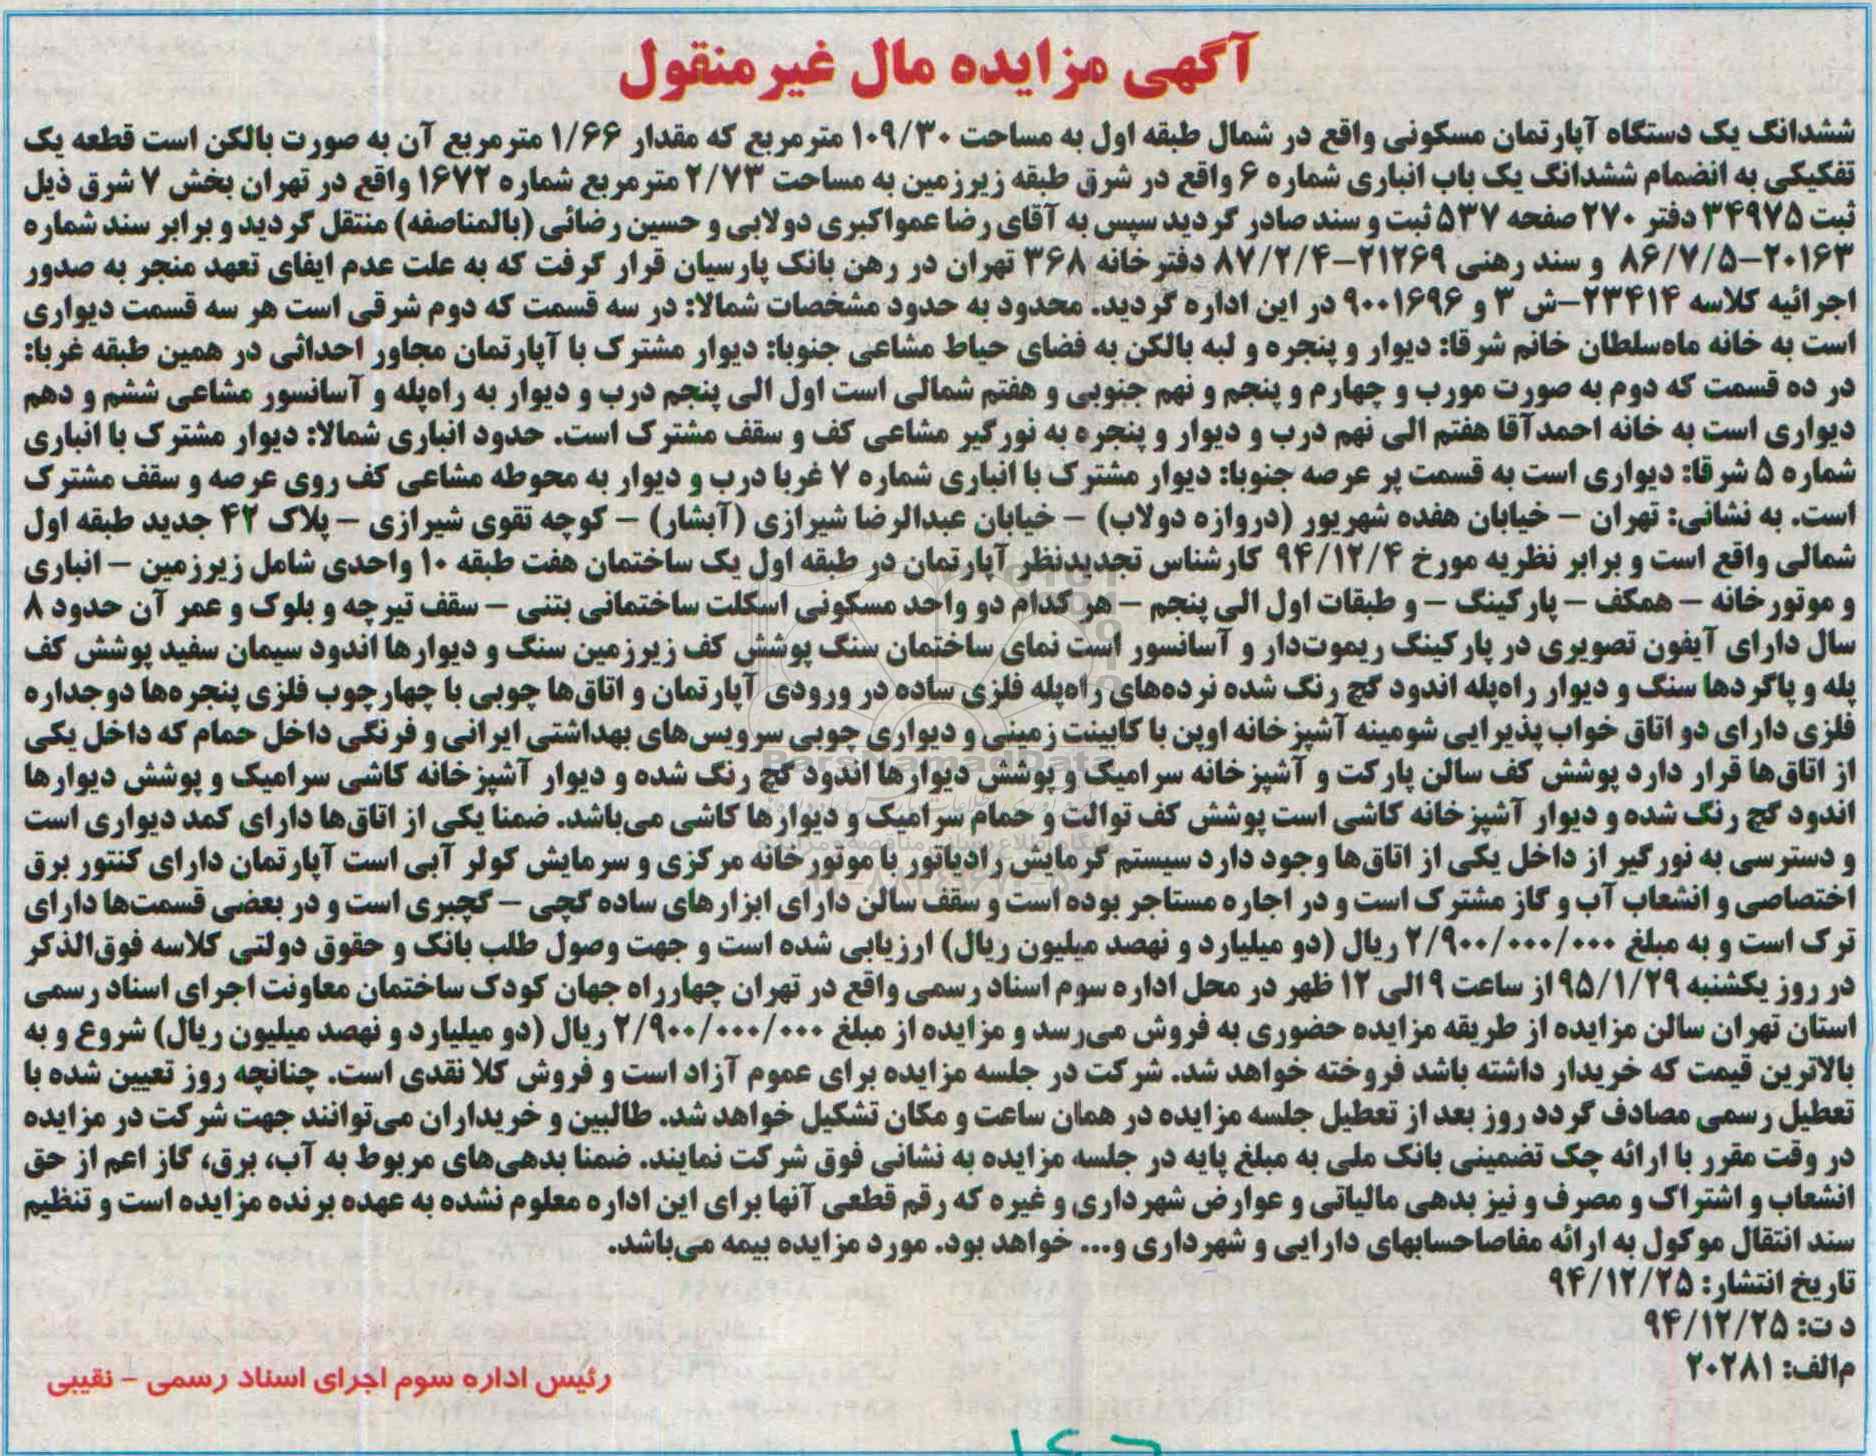 آگهی مزایده مال غیرمنقول
ششدانگ یک دستگاه آپارتمان مسکونی واقع در شمال طبقه اول به مساحت ۱۰۹/۳۰ مترمربع که مقدار ۱/۶۶ مترمربع آن به صورت بالکن است قطعه یک
تفکیکی به انضمام ششدانگ یک باب انباری شماره ۶ واقع در شرق طبقه زیرزمین به مساحت ۲/۷۳ مترمربع شماره ۱۶۷۲ واقع در تهران بخش ۷ شرق ذیل
ثبت ۳۴۹۷۵ دفتر ۲۷۰ صفحه ۵۳۷ ثبت و سند صادر گردید سپس به آقای رضا عمواکبری دولابی و حسین رضائی (بالمناصفه) منتقل گردید و برابر سند شماره
۲۰۱۶۳-۸۶/۷/۵ و سند رهنی ۲۱۲۶۹-۸۷/۲/۴ دفترخانه ۳۶۸ تهران در رهن بانک پارسیان قرار گرفت که به علت عدم ایفای تعهد منجر به صدور
اجرائیه کلاسه ۲۳۴۱۴-ش ۳ و ۹۰۰۱۶۹۶ در این اداره گردید. محدود به حدود مشخصات شمالا: در سه قسمت که دوم شرقی است هر سه قسمت دیواری
است به خانه ماه‌سلطان خانم شرقا: دیوار و پنجره و لبه بالکن به فضای حیاط مشاعی جنوبا: دیوار مشترک با آپارتمان مجاور احداثی در همین طبقه غربا:
در ده قسمت که دوم به صورت مورب و چهارم و پنجم و نهم جنوبی و هفتم شمالی است اول الی پنجم درب و دیوار به راه‌پله و آسانسور مشاعی ششم و دهم
دیواری است به خانه احمدآقا هفتم الی نهم درب و دیوار و پنجره به نورگیر مشاعی کف و سقف مشترک است. حدود انباری شمالا: دیوار مشترک با انباری
شماره ۵ شرقا: دیواری است به قسمت پر عرصه جنوبا: دیوار مشترک با انباری شماره ۷ غربا درب و دیوار به محوطه مشاعی کف روی عرصه و سقف مشترک
است. به نشانی: تهران – خیابان هفده شهریور (دروازه دولاب) – خیابان عبدالرضا شیرازی (آبشار) – کوچه تقوی شیرازی – پلاک ۴۲ جدید طبقه اول
شمالی واقع است و برابر نظریه مورخ ۹۴/۱۲/۴ کارشناس تجدیدنظر آپارتمان در طبقه اول یک ساختمان هفت طبقه ۱۰ واحدی شامل زیرزمین – انباری
و موتورخانه – همکف – پارکینگ – و طبقات اول الی پنجم – هر کدام دو واحد مسکونی اسکلت ساختمانی بتنی – سقف تیرچه و بلوک و عمر آن حدود ۸
سال دارای آیفون تصویری در پارکینگ ریموت‌دار و آسانسور است نمای ساختمان سنگ پوشش کف زیرزمین سنگ و دیوارها اندود سیمان سفید پوشش کف
پله و پاگردها سنگ و دیوار راه‌پله اندود گچ رنگ شده نرده‌های راه‌پله فلزی ساده در ورودی آپارتمان و اتاق‌ها چوبی با چهارچوب فلزی پنجره‌ها دوجداره
فلزی دارای دو اتاق خواب پذیرایی شومینه آشپزخانه اوپن با کابینت زمینی و دیواری چوبی سرویس‌های بهداشتی ایرانی و فرنگی داخل حمام که داخل یکی
از اتاق‌ها قرار دارد پوشش کف سالن پارکت و آشپزخانه سرامیک و پوشش دیوارها اندود گچ رنگ شده و دیوار آشپزخانه کاشی سرامیک و پوشش دیوارها
اندود گچ رنگ شده و دیوار آشپزخانه کاشی است پوشش کف توالت و حمام سرامیک و دیوارها کاشی می‌باشد. ضمنا یکی از اتاق‌ها دارای کمد دیواری است
و دسترسی به نورگیر از داخل یکی از اتاق‌ها وجود دارد سیستم گرمایش رادیاتور با موتورخانه مرکزی و سرمایش کولر آبی است آپارتمان دارای کنتور برق
اختصاصی و انشعاب آب و گاز مشترک است و در اجاره مستاجر بوده است و سقف سالن دارای ابزارهای ساده گچی – گچبری است و در بعضی قسمت‌ها دارای
ترک است و به مبلغ ۲/۹۰۰/۰۰۰/۰۰۰ ریال (دو میلیارد و نهصد میلیون ریال) ارزیابی شده است و جهت وصول طلب بانک و حقوق دولتی کلاسه فوق‌الذکر
در روز یکشنبه ۹۵/۱/۲۹ از ساعت ۹ الی ۱۲ ظهر در محل اداره سوم اسناد رسمی واقع در تهران چهارراه جهان کودک ساختمان معاونت اجرای اسناد رسمی
استان تهران سالن مزایده از طریقه مزایده حضوری به فروش می‌رسد و مزایده از مبلغ ۲/۹۰۰/۰۰۰/۰۰۰ ریال (دو میلیارد و نهصد میلیون ریال) شروع و به
بالاترین قیمت که خریدار داشته باشد فروخته خواهد شد. شرکت در جلسه مزایده برای عموم آزاد است و فروش کلا نقدی است. چنانچه روز تعیین شده با
تعطیل رسمی مصادف گردد روز بعد از تعطیل جلسه مزایده در همان ساعت و مکان تشکیل خواهد شد. طالبین و خریداران می‌توانند جهت شرکت در مزایده
در وقت مقرر با ارائه چک تضمینی بانک ملی به مبلغ پایه در جلسه مزایده به نشانی فوق شرکت نمایند. ضمنا بدهی‌های مربوط به آب، برق، گاز اعم از حق
انشعاب و اشتراک و مصرف و نیز بدهی مالیاتی و عوارض شهرداری و غیره که رقم قطعی آنها برای این اداره معلوم نشده به عهده برنده مزایده است و تنظیم
سند انتقال موکول به ارائه مفاصاحسابهای دارایی و شهرداری و... خواهد بود. مورد مزایده بیمه می‌باشد.
تاریخ انتشار: ۹۴/۱۲/۲۵
د ت: ۹۴/۱۲/۲۵
م‌الف: ۲۰۲۸۱
رئیس اداره سوم اجرای اسناد رسمی – نقیبی